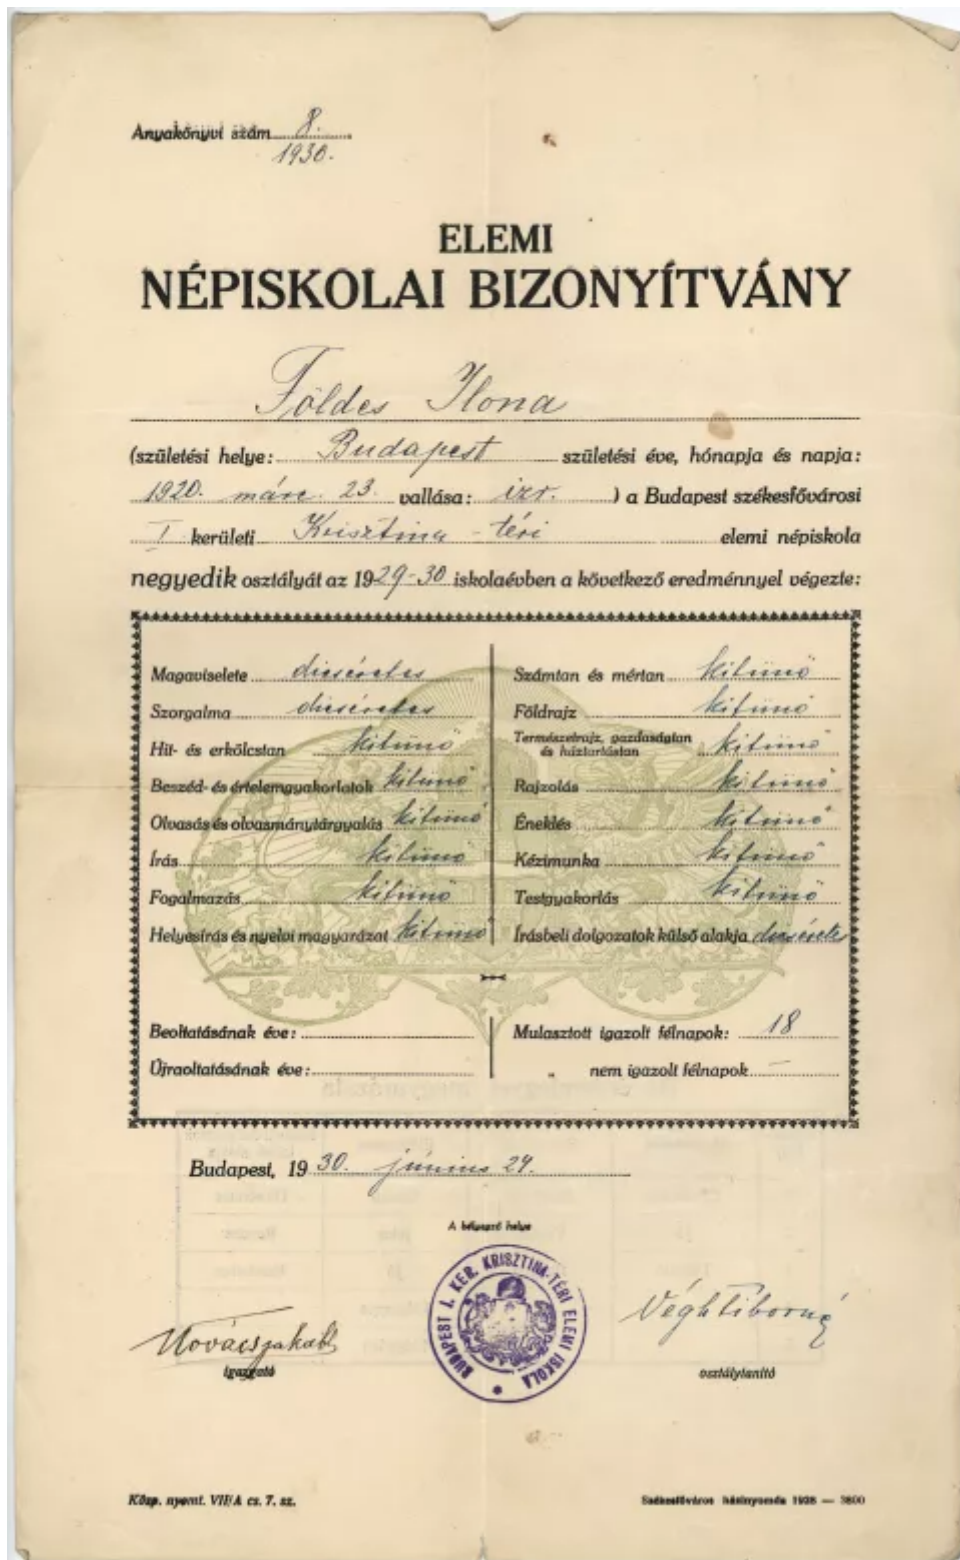 Anyakönyvi szám 8.
1930.
ELEMI
NÉPISKOLAI BIZONYÍTVÁNY
Földes Ilona
(születési helye: Budapest születési éve, hónapja és napja:
1920. márc. 23. vallása: izr. ) a Budapest székesfővárosi
I kerületi Krisztina-téri elemi népiskola
negyedik osztályát az 1929-30 iskolaévben a következő eredménnyel végezte:
Magaviselete dicséretes
Szorgalma dicséretes
Hit- és erkölcstan kitünő
Beszéd- és értelemgyakorlatok kitünő
Olvasás és olvasmánytárgyalás kitünő
Írás kitünő
Fogalmazás kitünő
Helyesírás és nyelvi magyarázat kitünő
Számtan és mértan kitünő
Földrajz kitünő
Természetrajz, gazdaságtan
és háztartástan kitünő
Rajzolás kitünő
Éneklés kitünő
Kézimunka kitünő
Testgyakorlás kitünő
Írásbeli dolgozatok külső alakja
Beoltatásának éve:
Újraoltatásának éve:
Mulasztott igazolt félnapok: 18
„ nem igazolt félnapok —
Budapest, 1930. június 24.
A bélyegző helye
BUDAPEST I. KER. KRISZTINA-TÉRI ELEMI ISKOLA
Kovács Jakab
igazgató
Végh Tiborné
osztálytanító
Közp. nyomt. VII/A cs. 7. sz.
Székesfőváros házinyomda 1928 — 3800